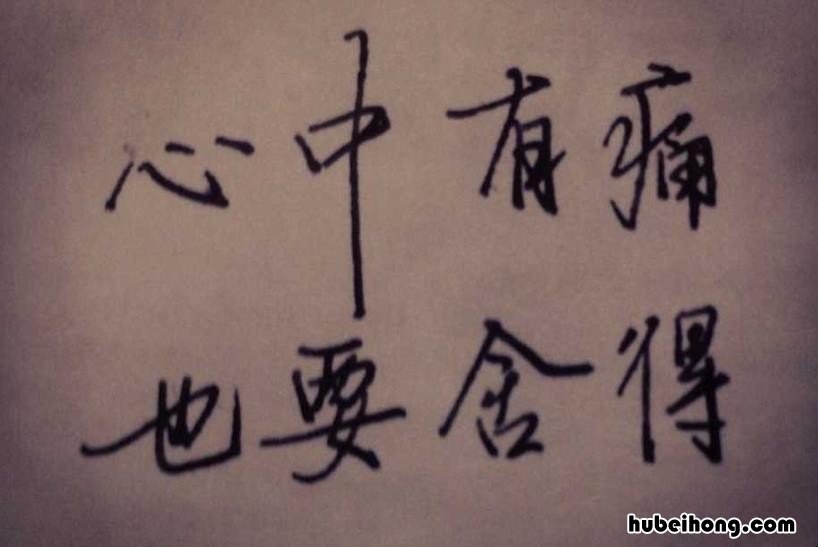 心中有痛
也要舍得
hubeihong.com